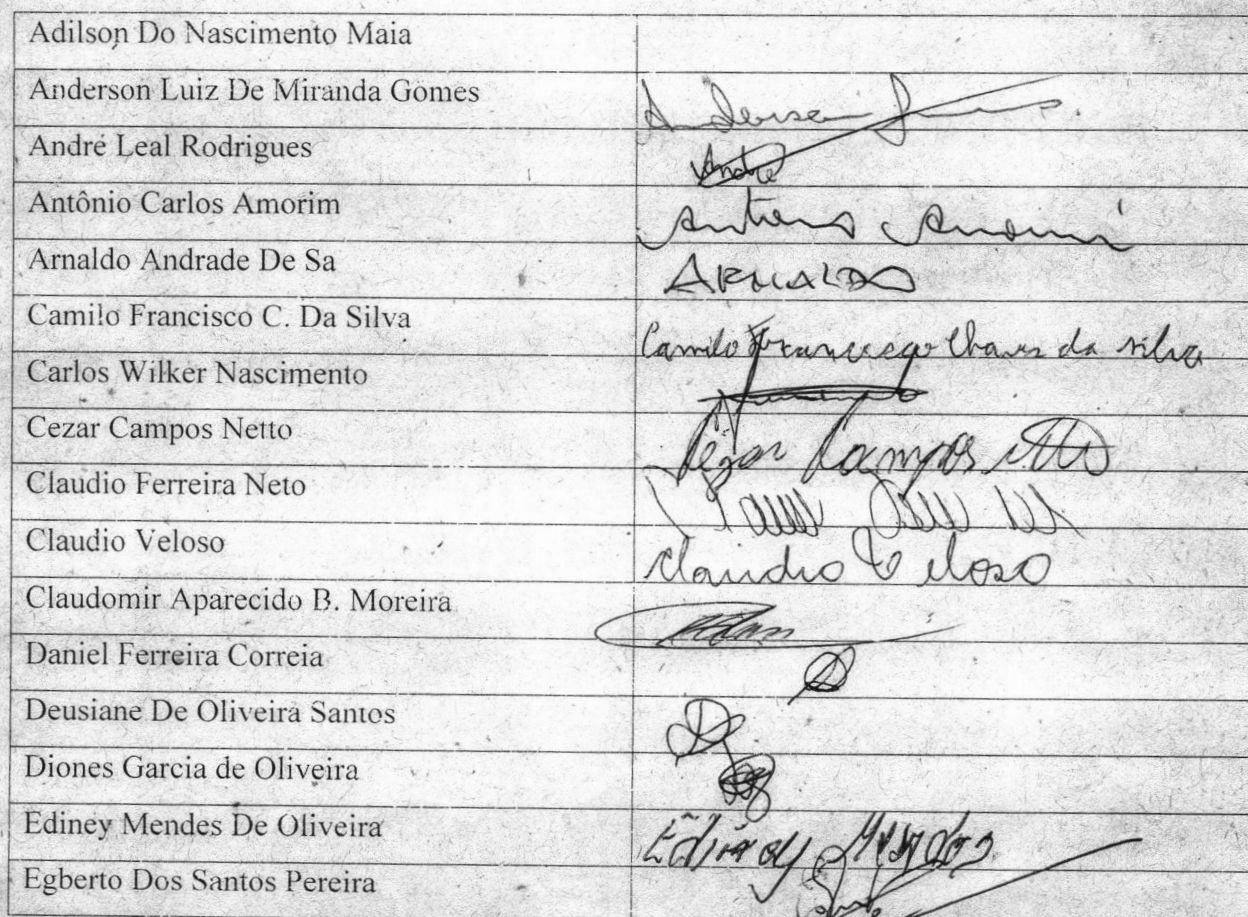 Adilson Do Nascimento Maia
Anderson Luiz De Miranda Gomes Anderson
André Leal Rodrigues André
Antônio Carlos Amorim Antonio Amorim
Arnaldo Andrade De Sa ARNALDO
Camilo Francisco C. Da Silva Camilo Francisco Chaves da silva
Carlos Wilker Nascimento
Cezar Campos Netto Cezar Campos Netto
Claudio Ferreira Neto
Claudio Veloso Claudio Veloso
Claudomir Aparecido B. Moreira
Daniel Ferreira Correia
Deusiane De Oliveira Santos
Diones Garcia de Oliveira
Ediney Mendes De Oliveira Ediney Mendes
Egberto Dos Santos Pereira